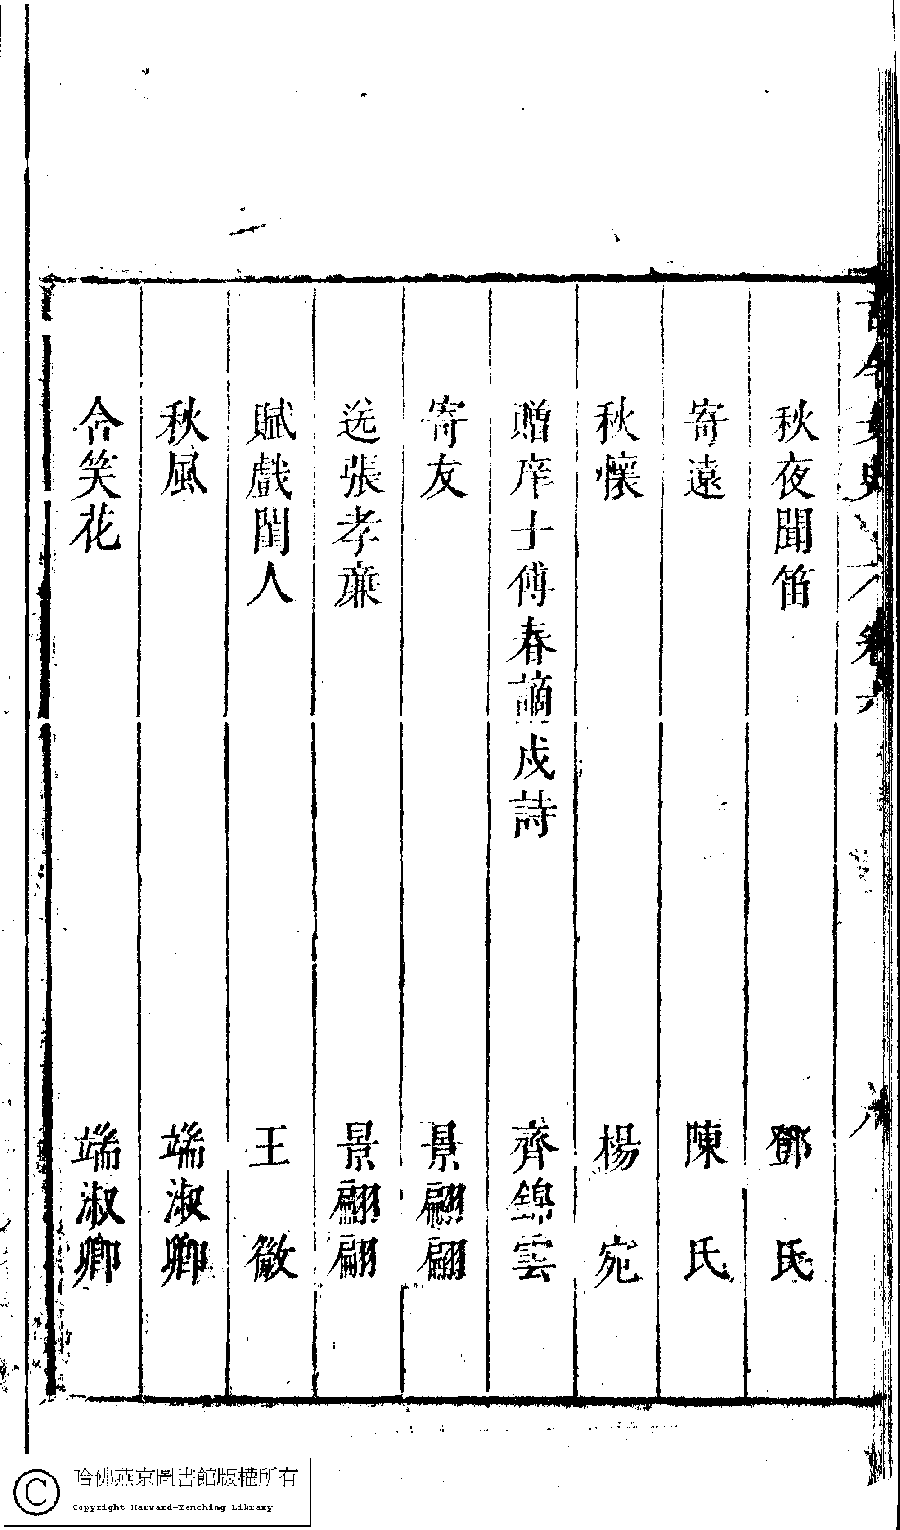 古今女史 卷六 八
秋夜聞笛 鄧氏
寄遠 陳氏
秋懷 楊宛
贈庠士傅春謫戍詩 齊錦雲
寄友 景翩翩
送張孝廉 景翩翩
賦戲閨人 王微
秋風 端淑卿
含笑花 端淑卿
哈佛燕京圖書館版權所有
Copyright Harvard-Yenching Library